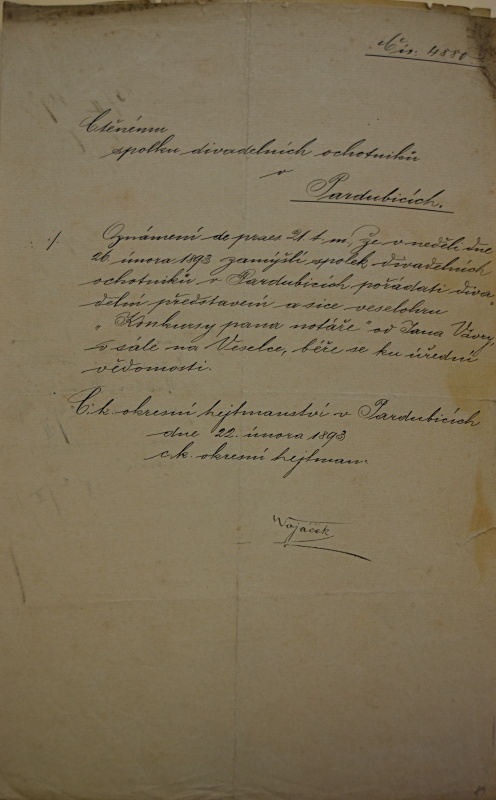 Čís. 4880
Ctěnému
spolku divadelních ochotníků
v
Pardubicích.
./. Oznámení de praes 21 t. m., že v neděli dne
26. února 1893 zamýšlí spolek divadelních
ochotníků v Pardubicích pořádati diva
delní představení a sice veselohru
„Konkursy pana notáře" od Jana Vávry,
v sále na Veselce, béře se ku úřední
vědomosti.
C. k. okresní hejtmanství v Pardubicích
dne 22. února 1893
c. k. okresní hejtman.
Vojáček